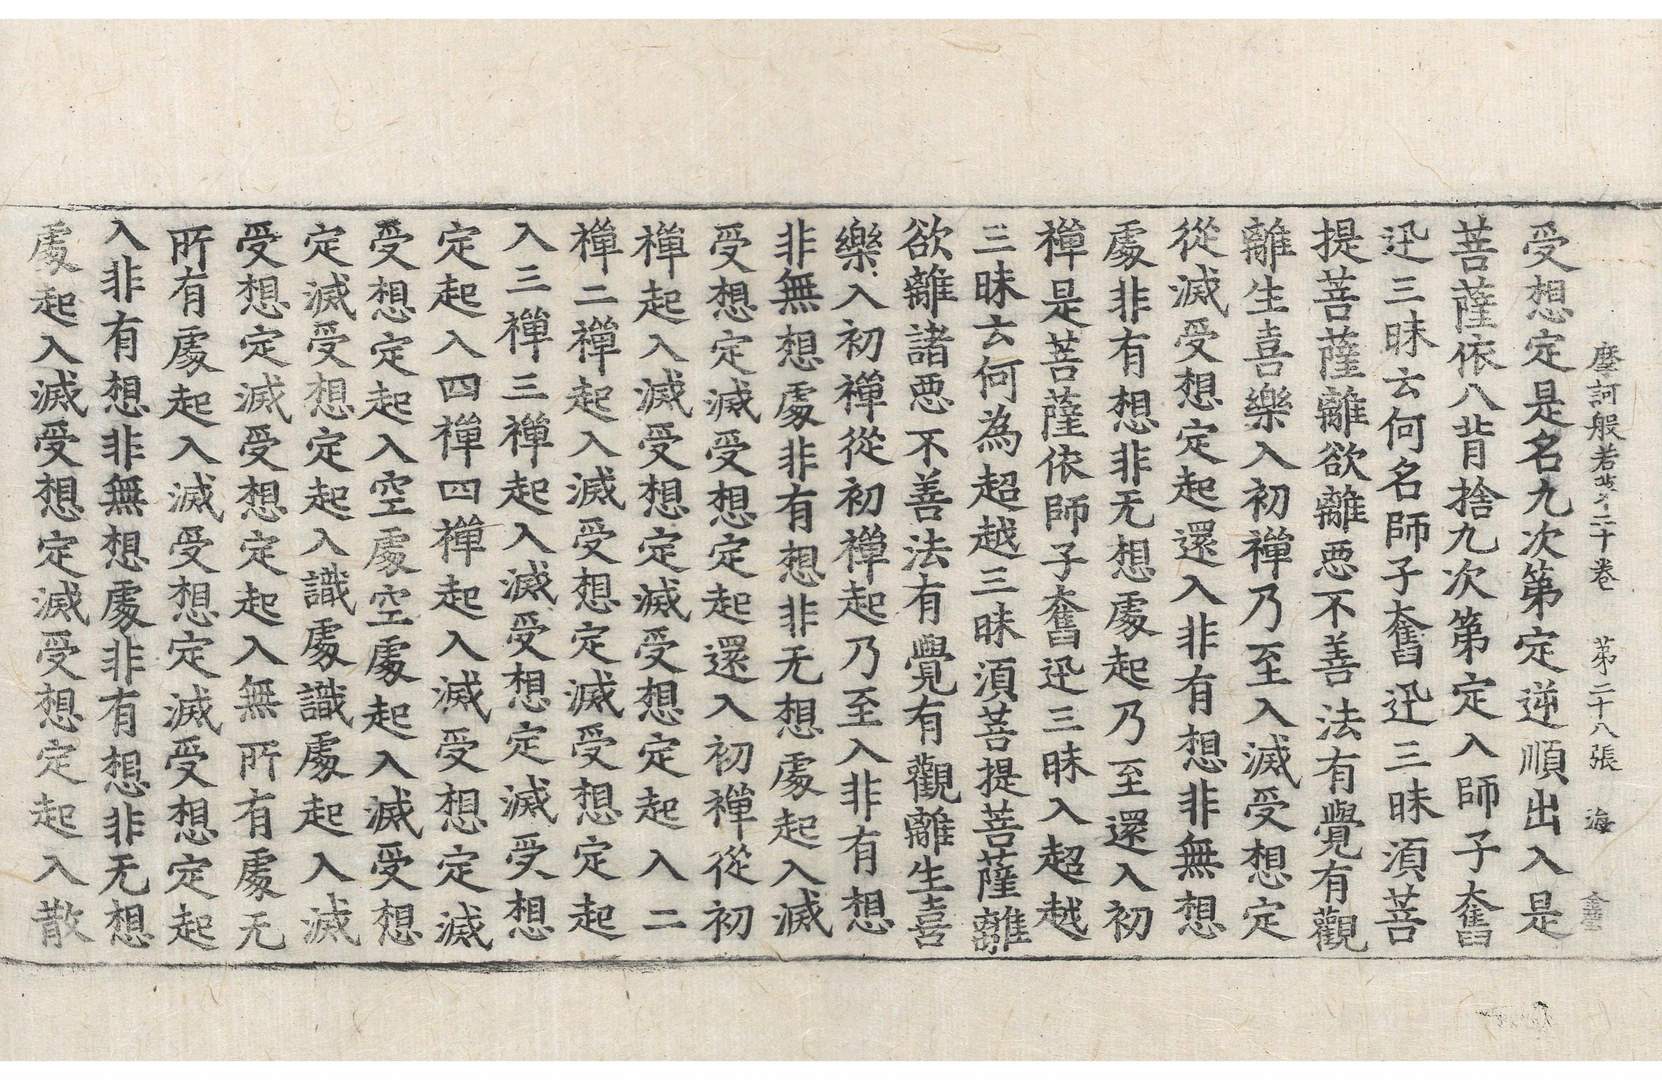 摩訶般若二十卷 第二十八張 海
受想定是名九次第定逆順出入是
菩薩依八背捨九次第定入師子奮
迅三昧云何名師子奮迅三昧須菩
提菩薩離欲離悪不善法有覺有觀
離生喜樂入初禪乃至入滅受想定
從滅受想定起還入非有想非無想
處非有想非无想處起乃至還入初
禪是菩薩依師子奮迅三昧入超越
三昧云何為超越三昧須菩提菩薩離
欲離諸悪不善法有覺有觀離生喜
樂入初禪從初禪起乃至入非有想
非無想處非有想非无想處起入滅
受想定滅受想定起還入初禪從初
禪起入滅受想定滅受想定起入二
禪二禪起入滅受想定滅受想定起
入三禪三禪起入滅受想定滅受想
定起入四禪四禪起入滅受想定滅
受想定起入空處空處起入滅受想
定滅受想定起入識處識處起入滅
受想定滅受想定起入無所有處无
所有處起入滅受想定滅受想定起
入非有想非無想處非有想非无想
處起入滅受想定滅受想定起入散